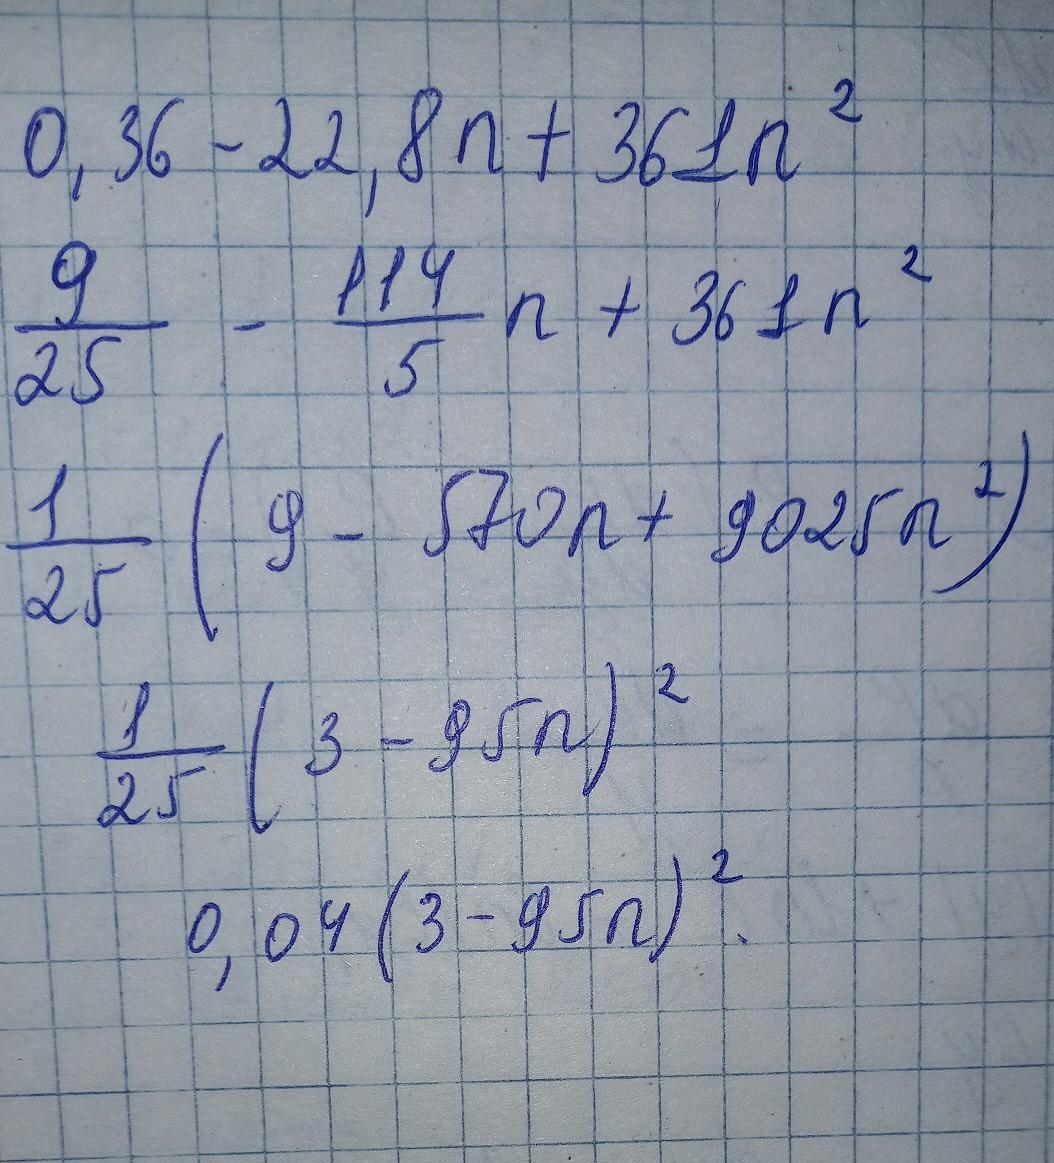 0,36 - 22,8n + 361n²
9/25 - 114/5 n + 361n²
1/25 (9 - 570n + 9025n²)
1/25 (3 - 95n)²
0,04 (3 - 95n)².